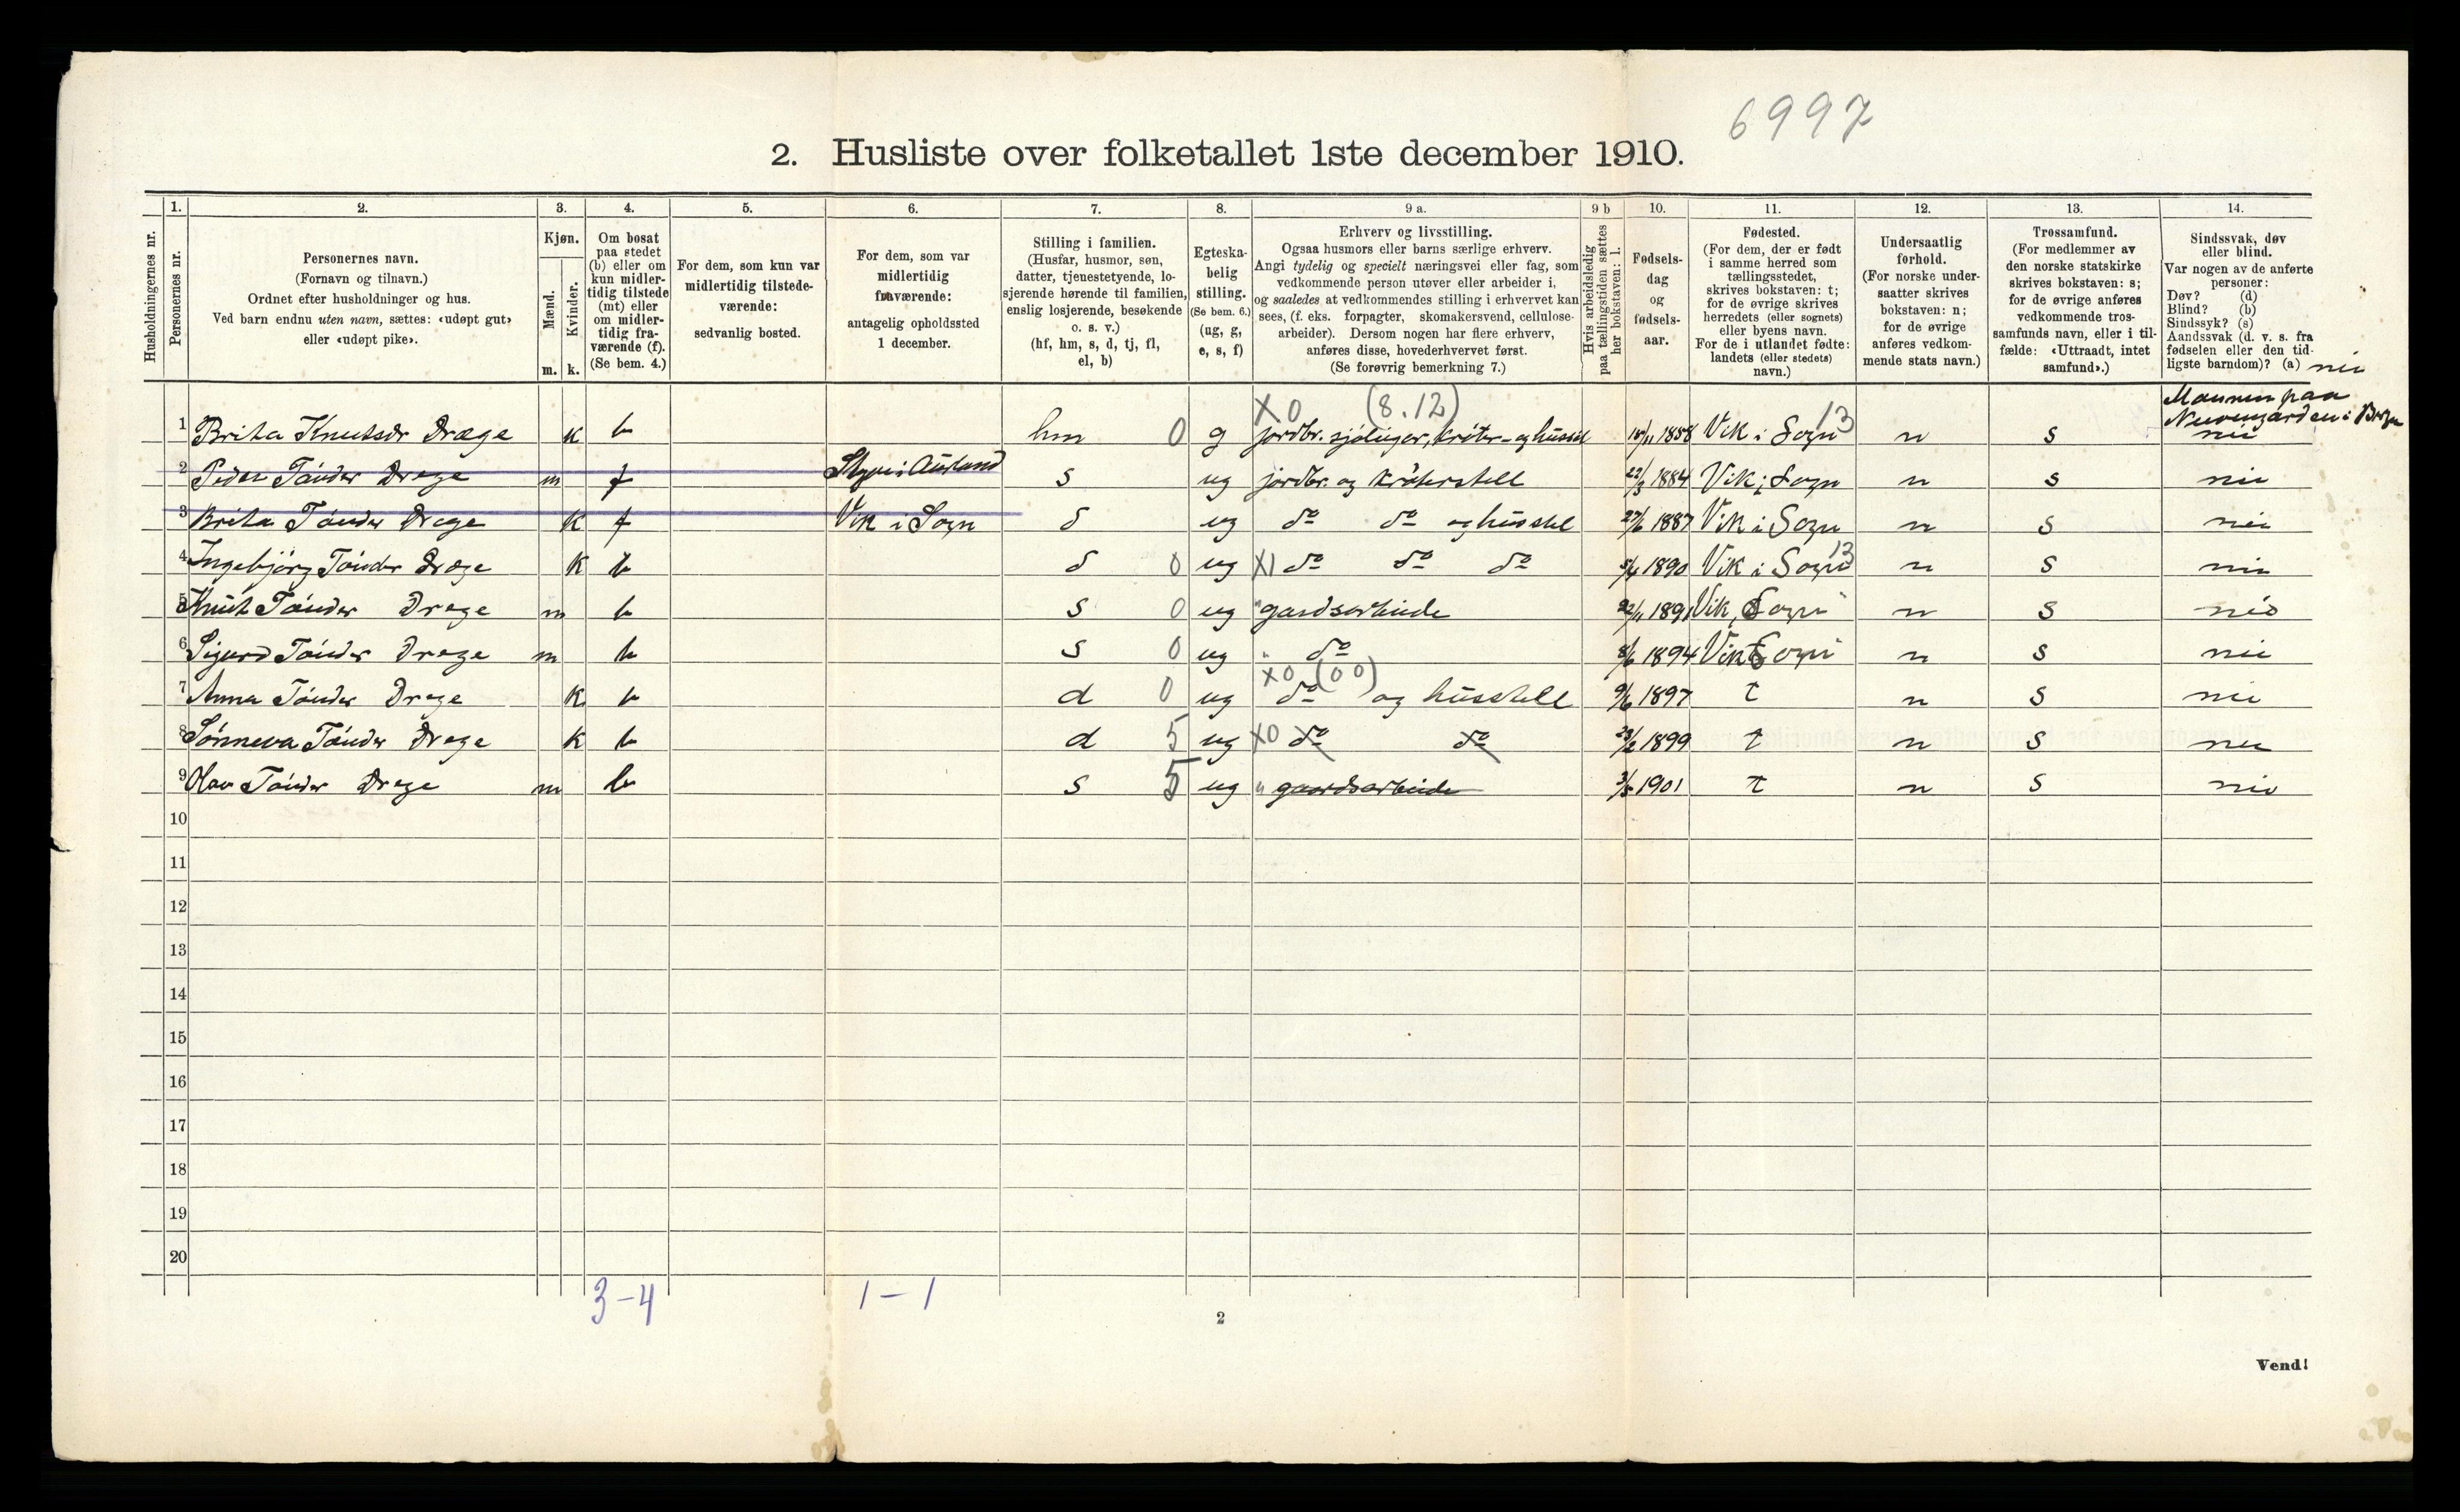 6997
2. Husliste over folketallet 1ste december 1910.
Husholdningernes nr.
1.
Personernes nr.
2.
Personernes navn.
(Fornavn og tilnavn.)
Ordnet efter husholdninger og hus.
Ved barn endnu uten navn, sættes: «udøpt gut»
eller «udøpt pike».
3.
Kjøn.
Mænd.
Kvinder.
m. k.
4.
Om bosat
paa stedet
(b) eller om
kun midler-
tidig tilstede
(mt) eller
om midler-
tidig fra-
værende (f).
(Se bem. 4.)
5.
For dem, som kun var
midlertidig tilstede-
værende:
sedvanlig bosted.
6.
For dem, som var
midlertidig
fraværende:
antagelig opholdssted
1 december.
7.
Stilling i familien.
(Husfar, husmor, søn,
datter, tjenestetyende, lo-
sjerende hørende til familien,
enslig losjerende, besøkende
o. s. v.)
(hf, hm, s, d, tj, fl,
el, b)
8.
Egteska-
belig
stilling.
(Se bem. 6.)
(ug, g,
e, s, f)
9 a.
Erhverv og livsstilling.
Ogsaa husmors eller barns særlige erhverv.
Angi tydelig og specielt næringsvei eller fag, som
vedkommende person utøver eller arbeider i,
og saaledes at vedkommendes stilling i erhvervet kan
sees, (f. eks. forpagter, skomakersvend, cellulose-
arbeider). Dersom nogen har flere erhverv,
anføres disse, hovederhvervet først.
(Se forøvrig bemerkning 7.)
9 b
Hvis arbeidsledig
paa tællingstiden sættes
her bokstaven: l.
10.
Fødsels-
dag
og
fødsels-
aar.
11.
Fødested.
(For dem, der er født
i samme herred som
tællingsstedet,
skrives bokstaven: t;
for de øvrige skrives
herredets (eller sognets)
eller byens navn.
For de i utlandet fødte:
landets (eller stedets)
navn.)
12.
Undersaatlig
forhold.
(For norske under-
saatter skrives
bokstaven: n;
for de øvrige
anføres vedkom-
mende stats navn.)
13.
Trossamfund.
(For medlemmer av
den norske statskirke
skrives bokstaven: s;
for de øvrige anføres
vedkommende tros-
samfunds navn, eller i til-
fælde: «Uttraadt, intet
samfund».)
14.
Sindssvak, døv
eller blind.
Var nogen av de anførte
personer:
Døv? (d)
Blind? (b)
Sindssyk? (s)
Aandssvak (d. v. s. fra
fødselen eller den tid-
ligste barndom)? (a) nei
X0 (8.12) 13 Mannen paa
i Bergen
1 Brita Knutsdr Dræge k b hm 0 g jordbr. kröter- og husstel 1858 Vik i Sogn n s nei
2 Peder Dræge m f i Aurland s ug jordbr. og kröterstell 22/3 1884 Vik i Sogn n s nei
3 Brita Dræge k f Vik i Sogn d ug do do og husstel 27/6 1887 Vik i Sogn n s nei
4 Ingebjörg Dræge k b d 0 ug X1 do do do 5/4 1890 Vik i Sogn 13 n s nei
5 Knut Dræge m b s 0 ug " gardsarbeide 22/11 1891 Vik, Sogn n s nei
6 Sigurd Dræge m b s 0 ug " do 8/6 1894 Vik Sogn n s nei
X0 (00)
7 Anna Dræge k b d 0 ug do og husstell 9/6 1897 t n s nei
8 Sönneva Dræge k b d 5 ug X0 do do 23/2 1899 t n s nei
9 Olav Dræge m b s 5 ug " gaardsarbeide 3/5 1901 t n s nei
10
11
12
13
14
15
16
17
18
19
20
3-4 1-1
2
Vend!